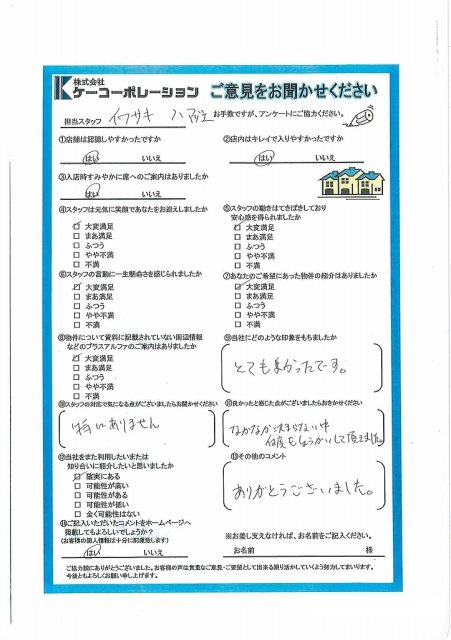 株式会社
ケーコーポレーション ご意見をお聞かせください
担当スタッフ イワサキ お手数ですが、アンケートにご協力ください。
①店舗は認識しやすかったですか
はい いいえ
②店内はキレイで入りやすかったですか
はい いいえ
③入店時すみやかに席へのご案内はありましたか
はい いいえ
④スタッフは元気に笑顔であなたをお迎えしましたか
大変満足
まあ満足
ふつう
やや不満
不満
⑤スタッフの動きはてきぱきしており
安心感を得られましたか
大変満足
まあ満足
ふつう
やや不満
不満
⑥スタッフの言動に一生懸命さを感じられましたか
大変満足
まあ満足
ふつう
やや不満
不満
⑦あなたのご希望にあった物件の紹介はありましたか
大変満足
まあ満足
ふつう
やや不満
不満
⑧物件について資料に記載されていない周辺情報
などのプラスアルファのご案内はありましたか
大変満足
まあ満足
ふつう
やや不満
不満
⑨当社にどのような印象をもちましたか
とてもよかったでーす。
⑩スタッフの対応で気になる点がございましたらお聞かせください
特にありません
⑪良かったと感じた点がございましたらおきかせください
なかなか決まらない中
何度もしょうかいして頂きました。
⑫当社をまた利用したいまたは
知り合いに紹介したいと思いましたか
確実にある
可能性が高い
可能性がある
可能性が低い
全く可能性はない
⑬その他のコメント
ありがとうございました。
⑭ご記入いただいたコメントをホームページへ
掲載してもよろしいでしょうか?
(お客様の個人情報は十分に配慮致します)
はい いいえ
※お差し支えなければ、お名前をご記入ください。
お名前 様
ご協力誠にありがとうございました。お客様の声は貴重なご意見・ご要望として出来る限り活かしていくよう努力してまいります。
今後ともよろしくお願い申し上げます。